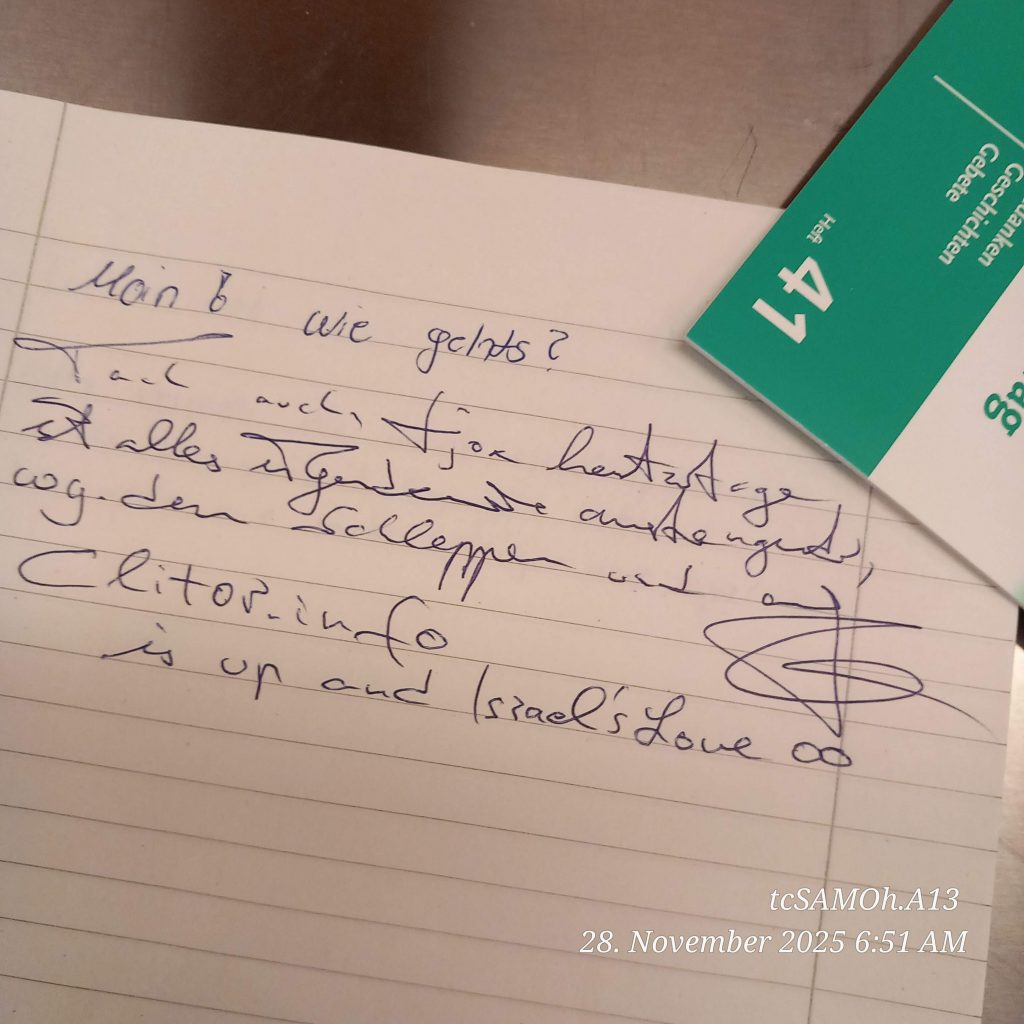 Moin 6 wie gehts?
Tach auch, tjoa heutzutage
ist alles irgendewie anstrengend,
weg. dem Schleppen und
Clitor.info
is up and Israel's Love ∞
Gedanken
Geschichten
Gebete
Heft 41
tcSAMOh.A13
28. November 2025 6:51 AM